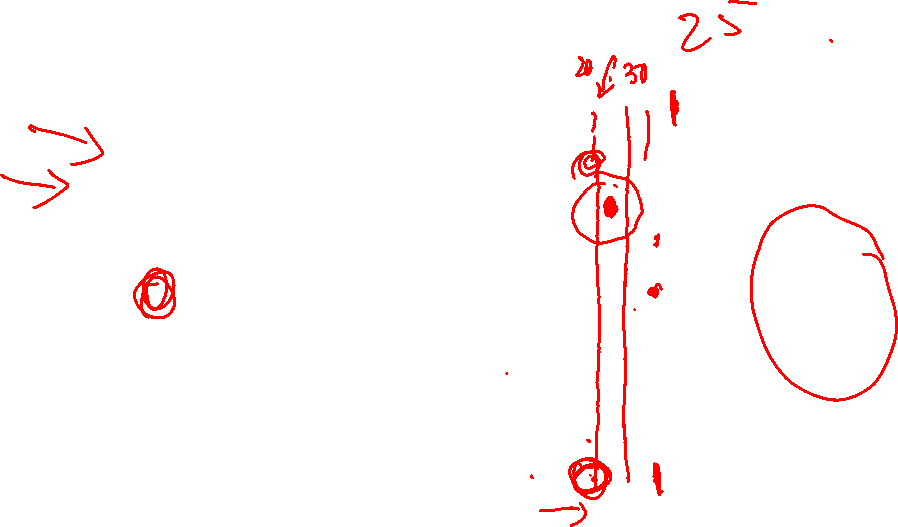 25
20 30